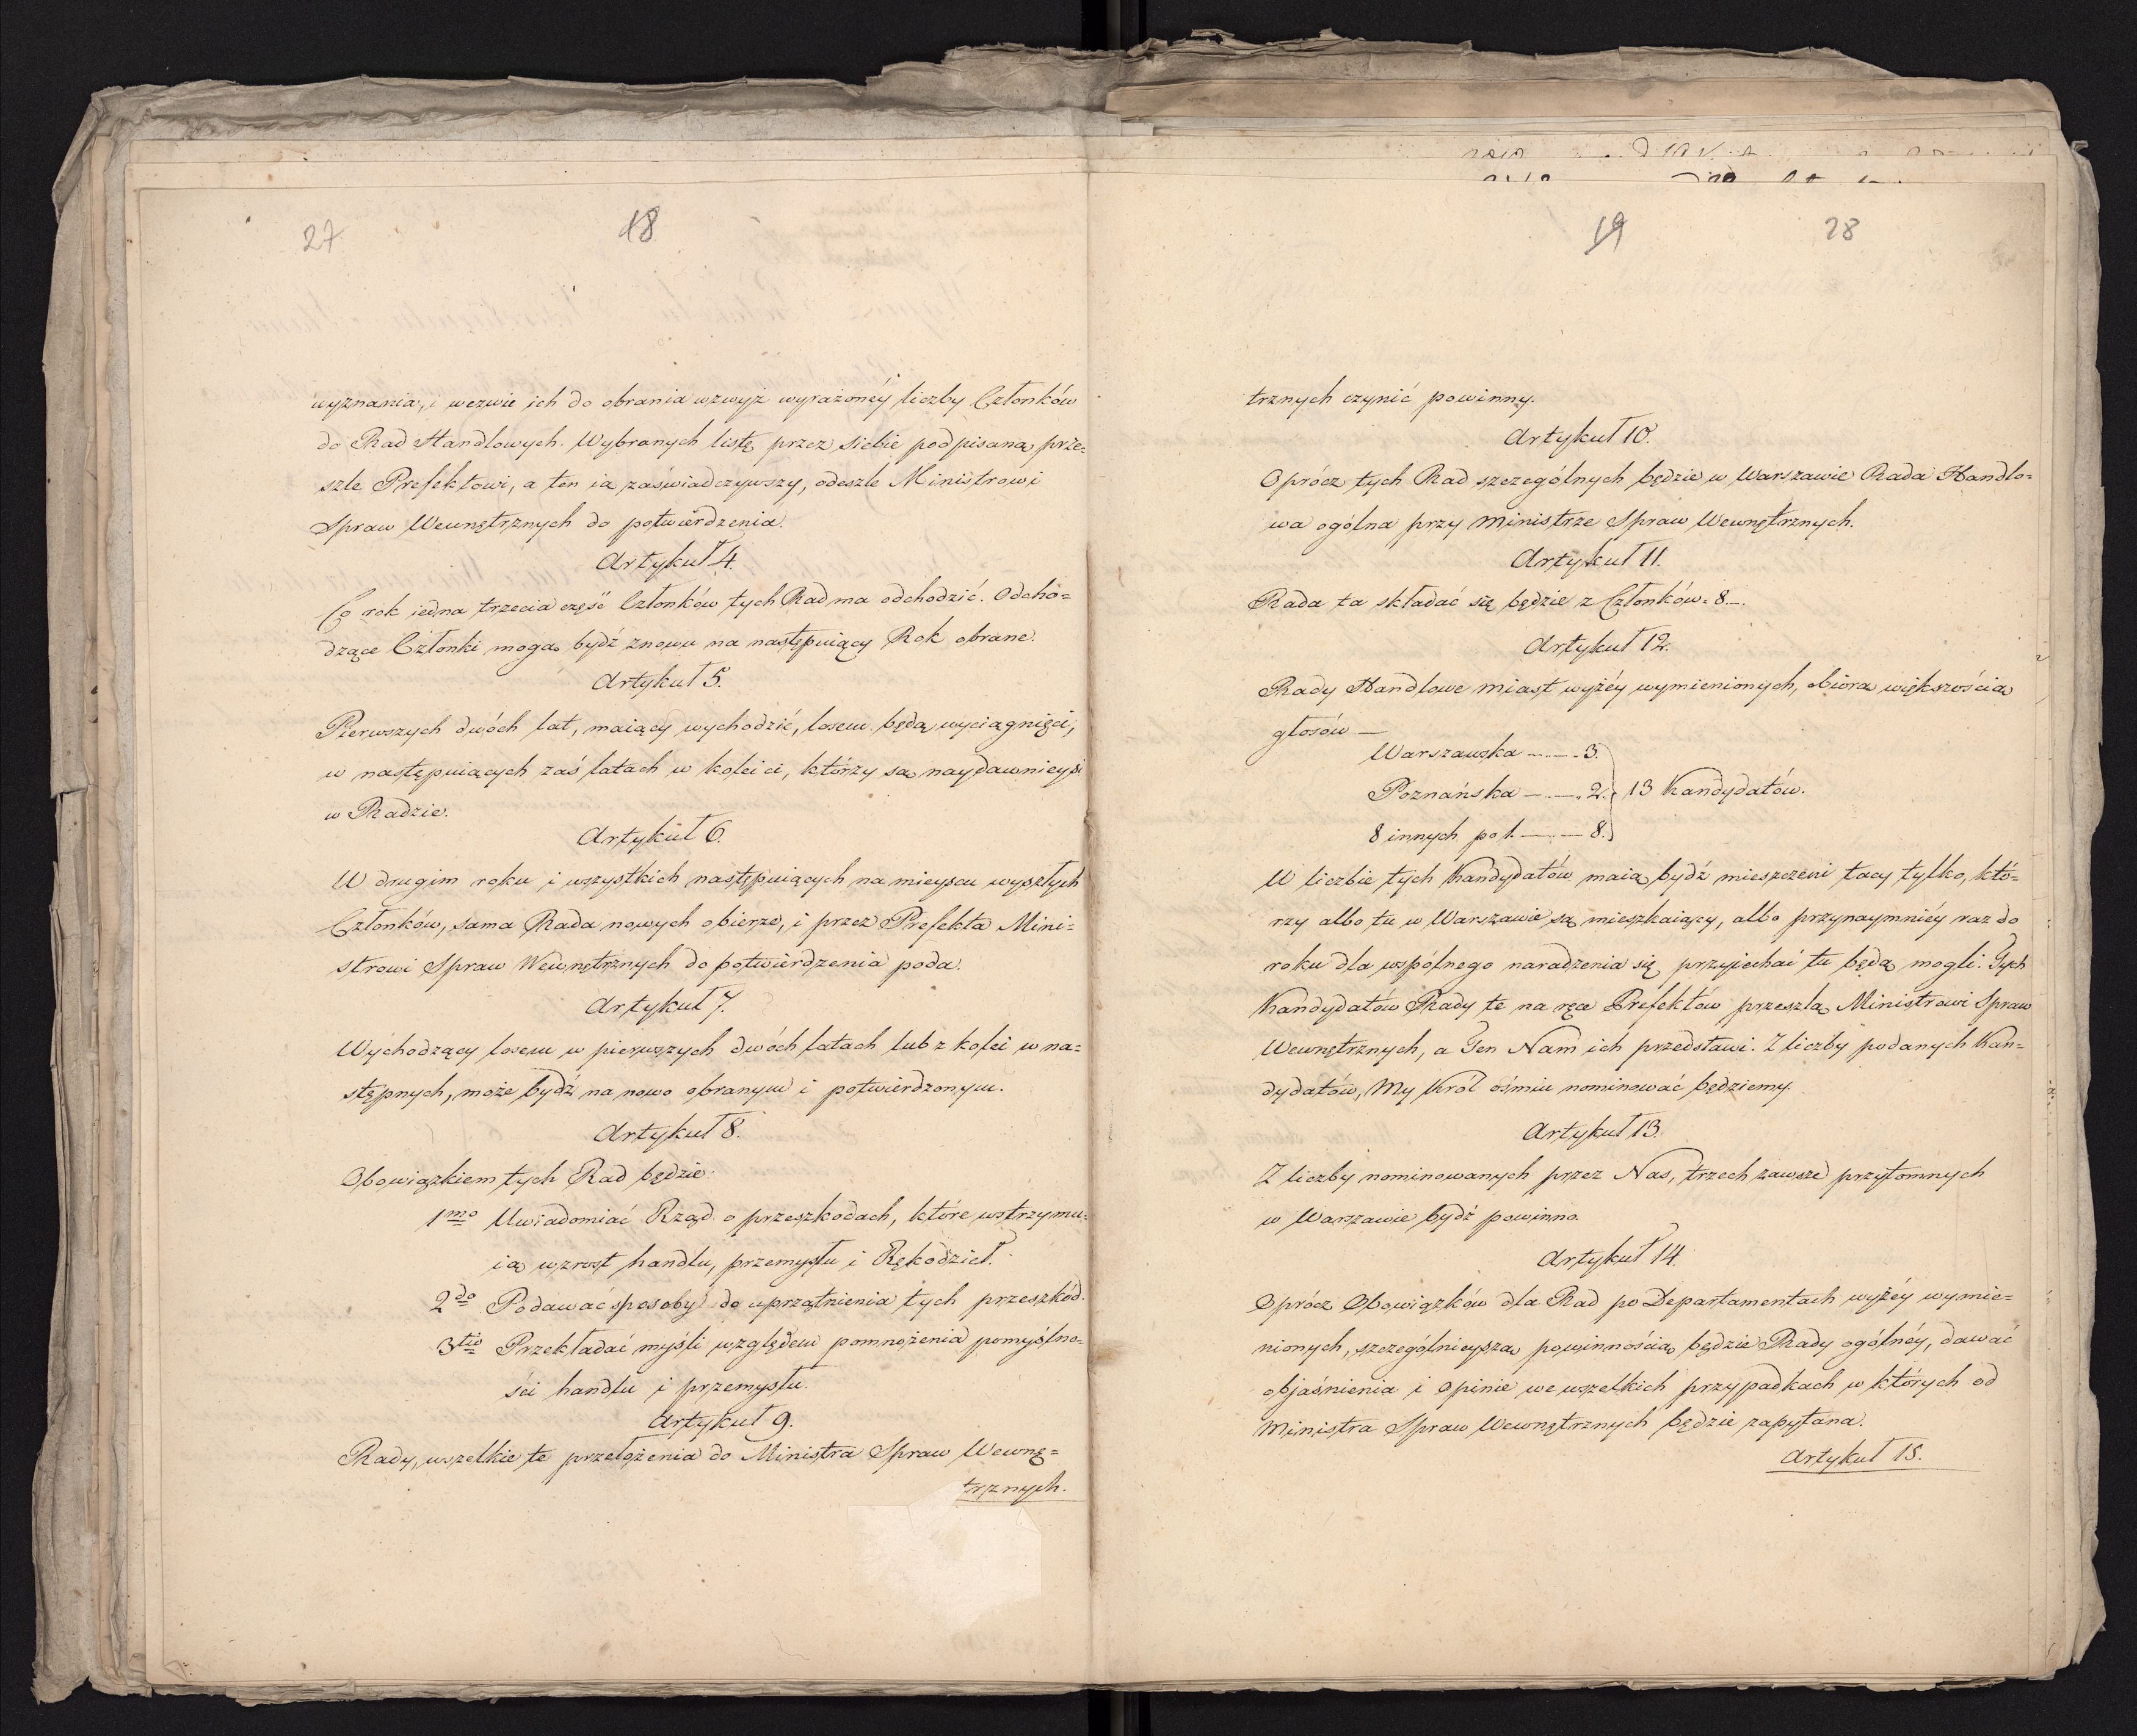 27
18
wyznania, i wezwie ich do obrania wzwyż wyrażonéy liczby Członków
do Rad Handlowych. Wybranych listę przez siebie podpisaną prze=
szle Prefektowi, a ten ią zaświadczywszy, odeszle Ministrowi
Spraw Wewnętrznych do potwierdzenia.
Artykuł 4.
Co rok iedna trzecia część Członków tych Rad ma odchodzić. Odcho=
dzące Członki mogą bydź znowu na następuiący Rok obrane.
Artykuł 5.
Pierwszych dwóch lat, maiący wychodzić, losem będą wyciągnięci,
w następuiących zaś latach w kolei ci, którzy są naydawnieysi
w Radzie.
Artykuł 6.
W drugim roku i wszystkich następuiących na mieyscu wyszłych
Członków, sama Rada nowych obierze, i przez Prefekta Mini=
strowi Spraw Wewnętrznych do potwierdzenia poda.
Artykuł 7.
Wychodzący losem w pierwszych dwóch latach lub z kolei w na=
stępnych, może bydź na nowo obranym i potwierdzonym.
Artykuł 8.
Obowiązkiem tych Rad będzie.
1mo Uwiadomiać Rząd o przeszkodach, które wstrzymu=
ią wzrost handlu, przemysłu i Rękodzieł.
2do Podawać sposoby do uprzątnienia tych przeszkód.
3tio Przekładać myśli względem pomnożenia pomyślno=
ści handlu i przemysłu.
Artykuł 9.
Rady, wszelkie te przełożenia do Ministra Spraw Wewnę=
trznych.
19
28
trznych czynić powinny.
Artykuł 10.
Oprócz tych Rad szczególnych będzie w Warszawie Rada Handlo=
wa ogólna przy Ministrze Spraw Wewnętrznych.
Artykuł 11.
Rada ta składać się będzie z Członków. 8.—.
Artykuł 12.
Rady Handlowe miast wyżéy wymienionych, obiorą większością
głosów —
Warszawska — . — 3.
Poznańska — . — . 2. } 13 Kandydatów.
8 innych po 1. — . — 8.
W liczbie tych Kandydatów maią bydź mieszczeni tacy tylko, któ=
rzy albo tu w Warszawie są mieszkaiący, albo przynaymniéy raz do
roku dla wspólnego naradzenia się przyiechać tu będą mogli. Tych
Kandydatów Rady te na ręce Prefektów przeszlą Ministrowi Spraw
Wewnętrznych, a Ten Nam ich przedstawi. Z liczby podanych Kan=
dydatów, My Król ośmiu nominować będziemy.
Artykuł 13.
Z liczby nominowanych przez Nas, trzech zawsze przytomnych
w Warszawie bydź powinno.
Artykuł 14.
Oprócz Obowiązków dla Rad po Departamentach wyżéy wymie=
nionych, szczególnieyszą powinnością będzie Rady ogólnéy, dawać
objaśnienia i opinie we wszelkich przypadkach w których od
Ministra Spraw Wewnętrznych będzie zapytana.
Artykuł 15.